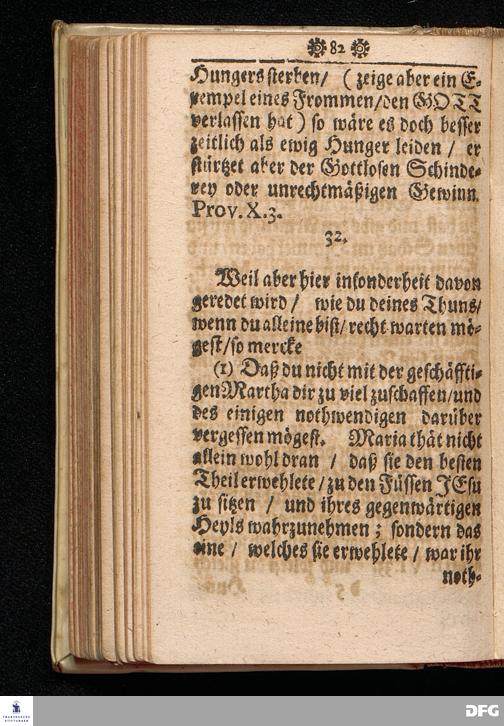 82
Hungers sterben/ (zeige aber ein E-
xempel eines Frommen/den GOTT
verlassen hat) so wäre es doch besser
zeitlich als ewig Hunger leiden / er
stürtzet aber der Gottlosen Schinde-
rey oder unrechtmäßigen Gewinn.
Prov. X.3.
32.
Weil aber hier insonderheit davon
geredet wird / wie du deines Thuns/
wenn du alleine bist/recht warten mö-
gest/so mercke
(1) Daß du nicht mit der geschäffti-
gen Martha dir zu viel zuschaffen/und
des einigen nothwendigen darüber
vergessen mögest. Maria thät nicht
allein wohl dran / daß sie den besten
Theil erwehlete/zu den Füssen JEsu
zu sitzen / und ihres gegenwärtigen
Heyls wahrzunehmen; sondern das
eine / welches sie erwehlete / war ihr
noth-
FRANCKESCHE
STIFTUNGEN
DFG